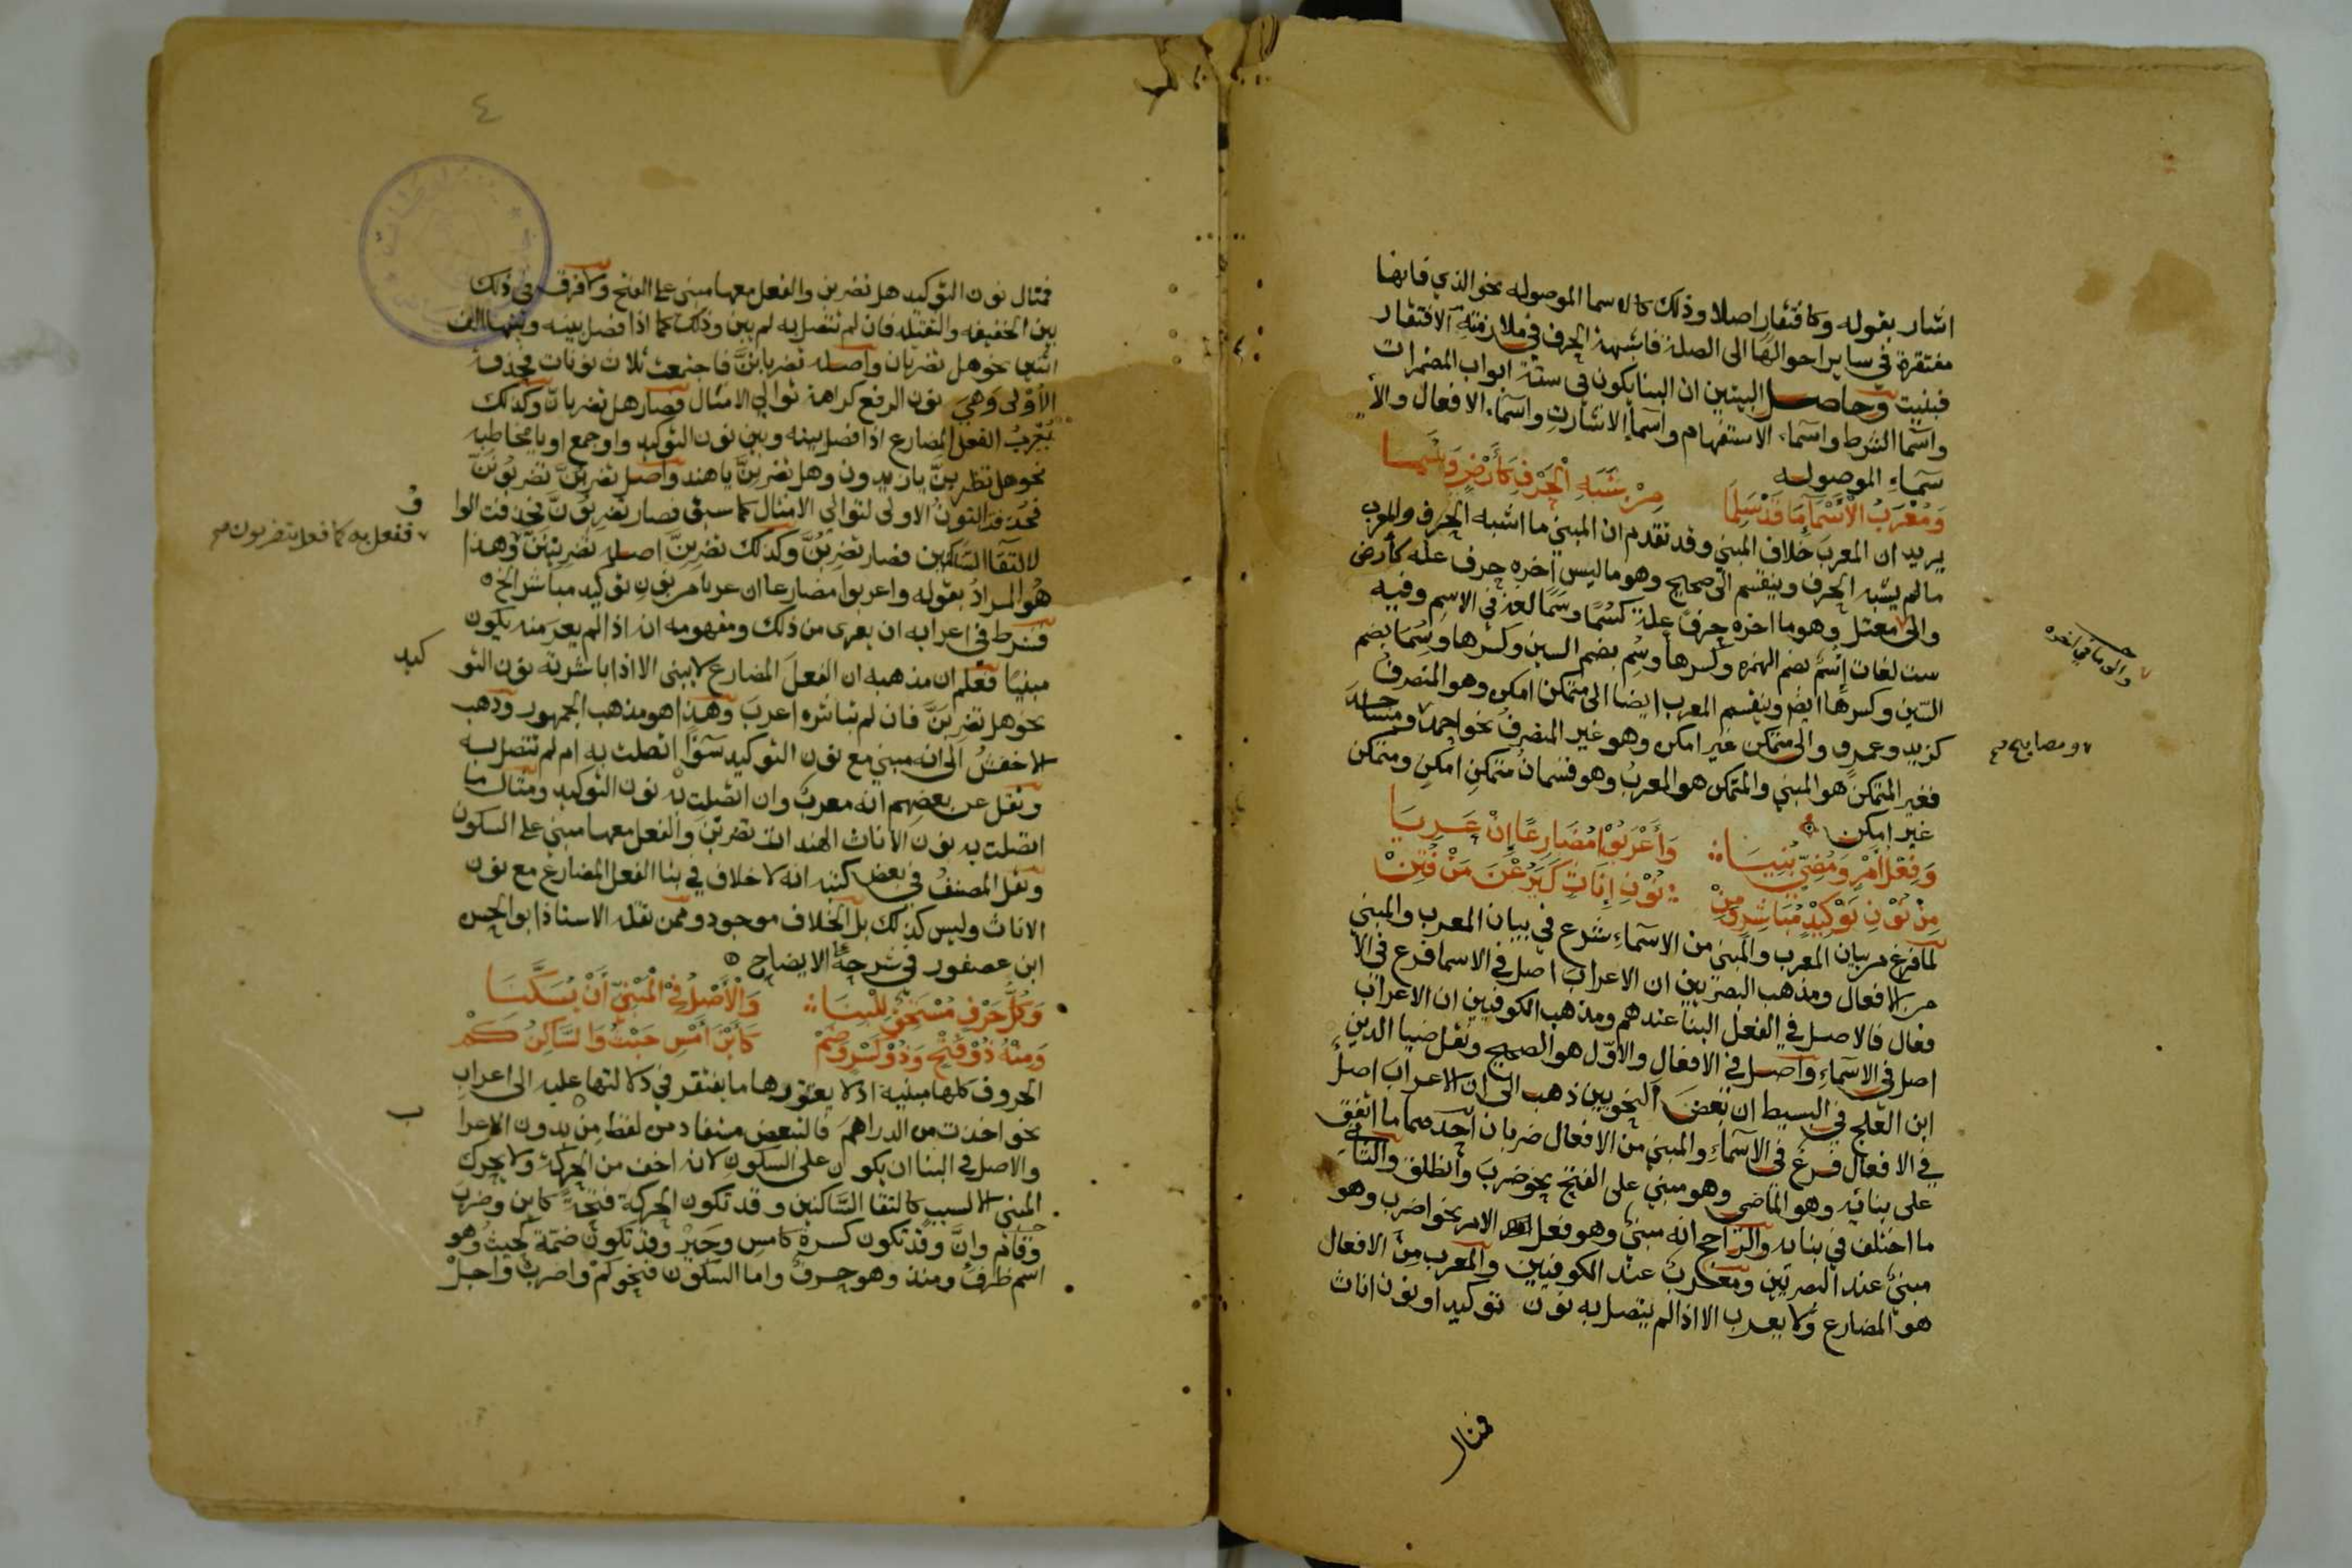 اشار بقوله وكافتقار اصلا وذلك كالاسما الموصوله نحو الذي فانها
مفتقرة في ساير احوالها الى الصلة فاشبهة الحرف في ملازمته الافتقار
فبنيت وحاصل البيتين ان البنا يكون في ستة ابواب المضمرات
واسما الشرط واسماء الاستفهام واسما الاشارت واسماء الافعال والا
سماء الموصوله
وَمُعْرَبُ الْأَسْمَآءِ مَا قَدْ سَلِمَا مِنْ شَبَهِ الْحَرْفِ كَأَرْضٍ وَسُمَا
يريد ان المعرب خلاف المبني وقد تقدم ان المبني ما اشبه الحرف والمعرب
مالم يشبه الحرف وينقسم الى صحيح وهو ما ليس اخره حرف عله كأرض
والى معتل وهو ما اخره حرف علة كسُمًا وسُمًا لغة في الاسم وفيه
ست لغات إسُمٌ بضم الهمزه وكسرها وسُم بضم السين وكسرها وسُمَا بضم
السين وكسرها ايضا وينقسم المعرب ايضا الى متمكن امكن وهو المنصرف
كزيد وعمرو والى متمكن غير امكن وهو غير المنصرف نحو احمد ومساجد
فغير المتمكن هو المبني والمتمكن هو المعرب وهو قسمان متمكن امكن ومتمكن
غير امكن
وَفِعْلُ أَمْرٍ وَمُضِيٍّ بُنِيَا وَأَعْرَبُوْا مُضَارِعًا إِنْ عَرِيَا
مِنْ نُوْنِ تَوْكِيْدٍ مُبَاشِرٍ وَمِنْ نُوْنِ إِنَاثٍ كَيَرُعْنَ مَنْ فُتِنْ
لما فرغ من بيان المعرب والمبني من الاسماء شرع في بيان المعرب والمبني
من الافعال ومذهب البصريين ان الاعراب اصل في الاسما فرع في الا
فعال فالاصل في الفعل البنا عندهم ومذهب الكوفيين ان الاعراب
اصل في الاسماء واصل في الافعال والاول هو الصحيح ونقل ضيا الدين
ابن العلج في البسيط ان بعض النحويين ذهب الى ان الاعراب اصل
في الافعال فرع في الاسماء والمبني من الافعال ضربان احدهما ما اتفق
على بنائه وهو الماضي وهو مبني على الفتح نحو ضرب وانطلق والثاني
ما اختلف في بنايه والراجح انه مبني وهو فعل الامر نحو اضرب وهو
مبني عند البصريين ومعرب عند الكوفيين والمعرب من الافعال
هو المضارع ولا يعرب الا اذا لم يتصل به نون توكيد او نون اناث
فمثال
والى ما في اخره
ومصابيح صح
٤
فمثال نون التوكيد هل تضربن والفعل معها مبني على الفتح ولا فرق في ذلك
بين الخفيفه والثقيله فان لم تتصل به لم يبن وذلك كما اذا فصل بينه وبينها الف
اثنين نحو هل تضربان واصله تضرباننّ فاجتمعت ثلاث نونات فحذفت
الأولى وهي نون الرفع كراهة توالي الامثال فصار هل تضربانّ وكذلك
يُعرب الفعل المضارع اذا فصل بينه وبين نون التوكيد واو جمع او يا مخاطبه
نحو هل تضربنّ يا زيدون وهل تضربنّ يا هند واصل تضربُنّ تضربونَنّ
فحذفت النون الاولى لتوالي الامثال كما سبق فصار تضربُونّ فحذفت الوا
و
لالتقا الساكنين فصار تضربُنّ وكذلك تضربِنّ اصله تضربِيْنَنّ وهذا
ففعل به كما فعل بتضربون صح
هو المراد بقوله واعربوا مضارعا ان عريا من نون توكيد مباشر الخ ٥
فشرط في اعرابه ان يعرى من ذلك ومفهومه ان اذا لم يعر منه يكون
مبنيًا فعلم ان مذهبه ان الفعل المضارع لا يبنى الا اذا باشرته نون التو
كيد
نحو هل تضربنّ فان لم تباشره اعرب وهذا هو مذهب الجمهور وذهب
الاخفش الى انه مبني مع نون التوكيد سوًا اتصلت به ام لم تتصل به
ونقل عن بعضهم انه معرب وان اتصلت به نون التوكيد ومثال ما
اتصلت به نون الاناث الهندات تضربن والفعل معها مبني على السكون
ونقل المصنف في بعض كتبه انه لا خلاف في بنا الفعل المضارع مع نون
الاناث وليس كذلك بل الخلاف موجود وممن نقله الاستاذ ابو الحسن
ابن عصفور في شرحه الايضاح ٥
وَكُلُّ حَرْفٍ مُسْتَحِقٌّ لِلْبِنَا وَالْأَصْلُ فِي الْمَبْنِيِّ أَنْ يُسَكَّنَا
وَمِنْهُ ذُوْ فَتْحٍ وَذُوْ كَسْرٍ وَضَمْ كَأَيْنَ أَمْسِ حَيْثُ وَالسَّاكِنُ كَمْ
الحروف كلها مبنية اذ لا يعتورها ما يفتقر في دلالتها عليه الى اعراب
نحو اخذت من الدراهم فالتبعض مستفاد من لفظ من بدون الاعرا
ب
والاصل في البنا ان يكون على السكون لانه اخف من الحركة ولا يحرك
المبني الا لسبب كالتقا الساكنين وقد تكون الحركة فتحة كاين وضرب
وقام وانّ وقد تكون كسرة كامس وجير وقد تكون ضمة كحيث وهو
اسم ظرف ومنذ وهو حرف واما السكون فنحو كم واضرب واجل